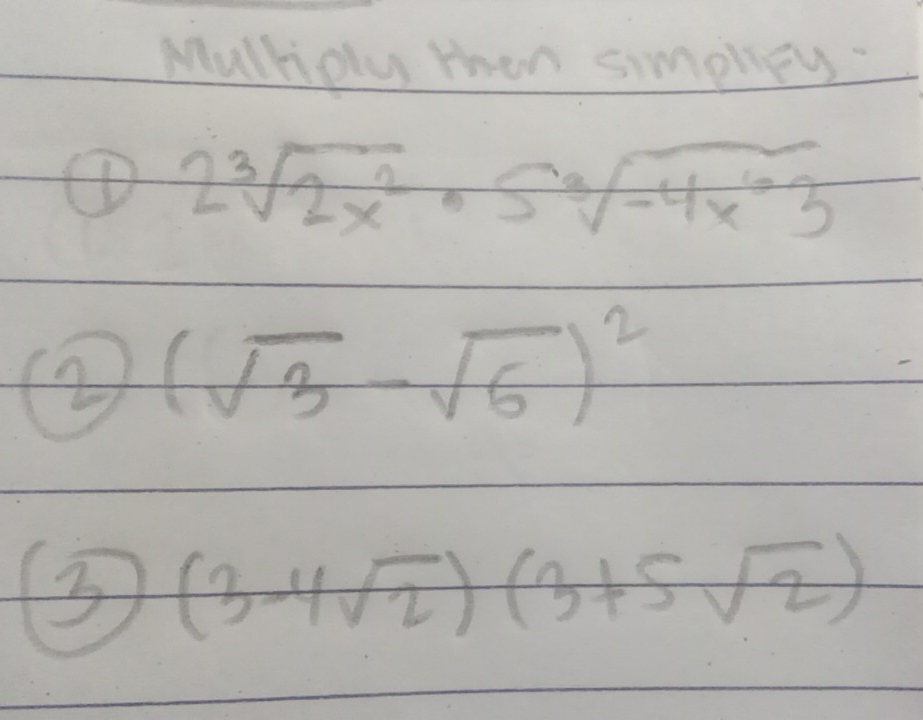 Multiply then simplify.
① 2∛2x² · 5∛-4x 3
② (√3 - √6)²
③ (3-4√2) (3+5√2)